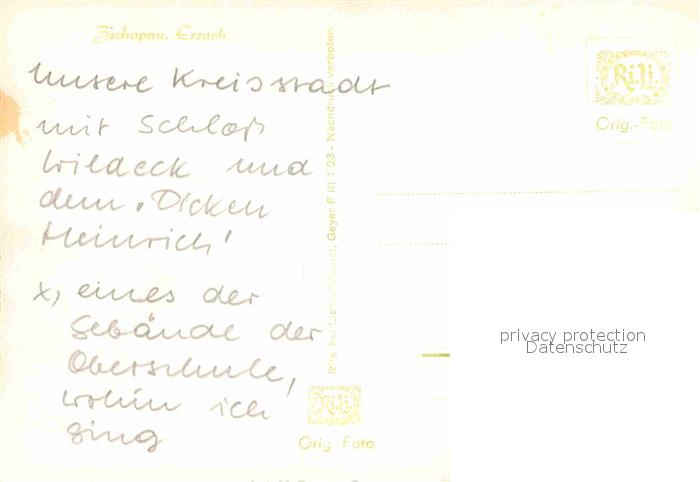 Zschopau, Erzgeb.
Unsere Kreisstadt
mit Schloß
Wildeck und
dem "Dicken
Heinrich'
x, eines der
Gebäude der
Oberschule,
wohin ich
ging
Geyer F III 1 23 - Nachdruck verboten
Ri.Li.
Orig.-Foto
Ri.Li.
Orig. Foto
privacy protection
Datenschutz